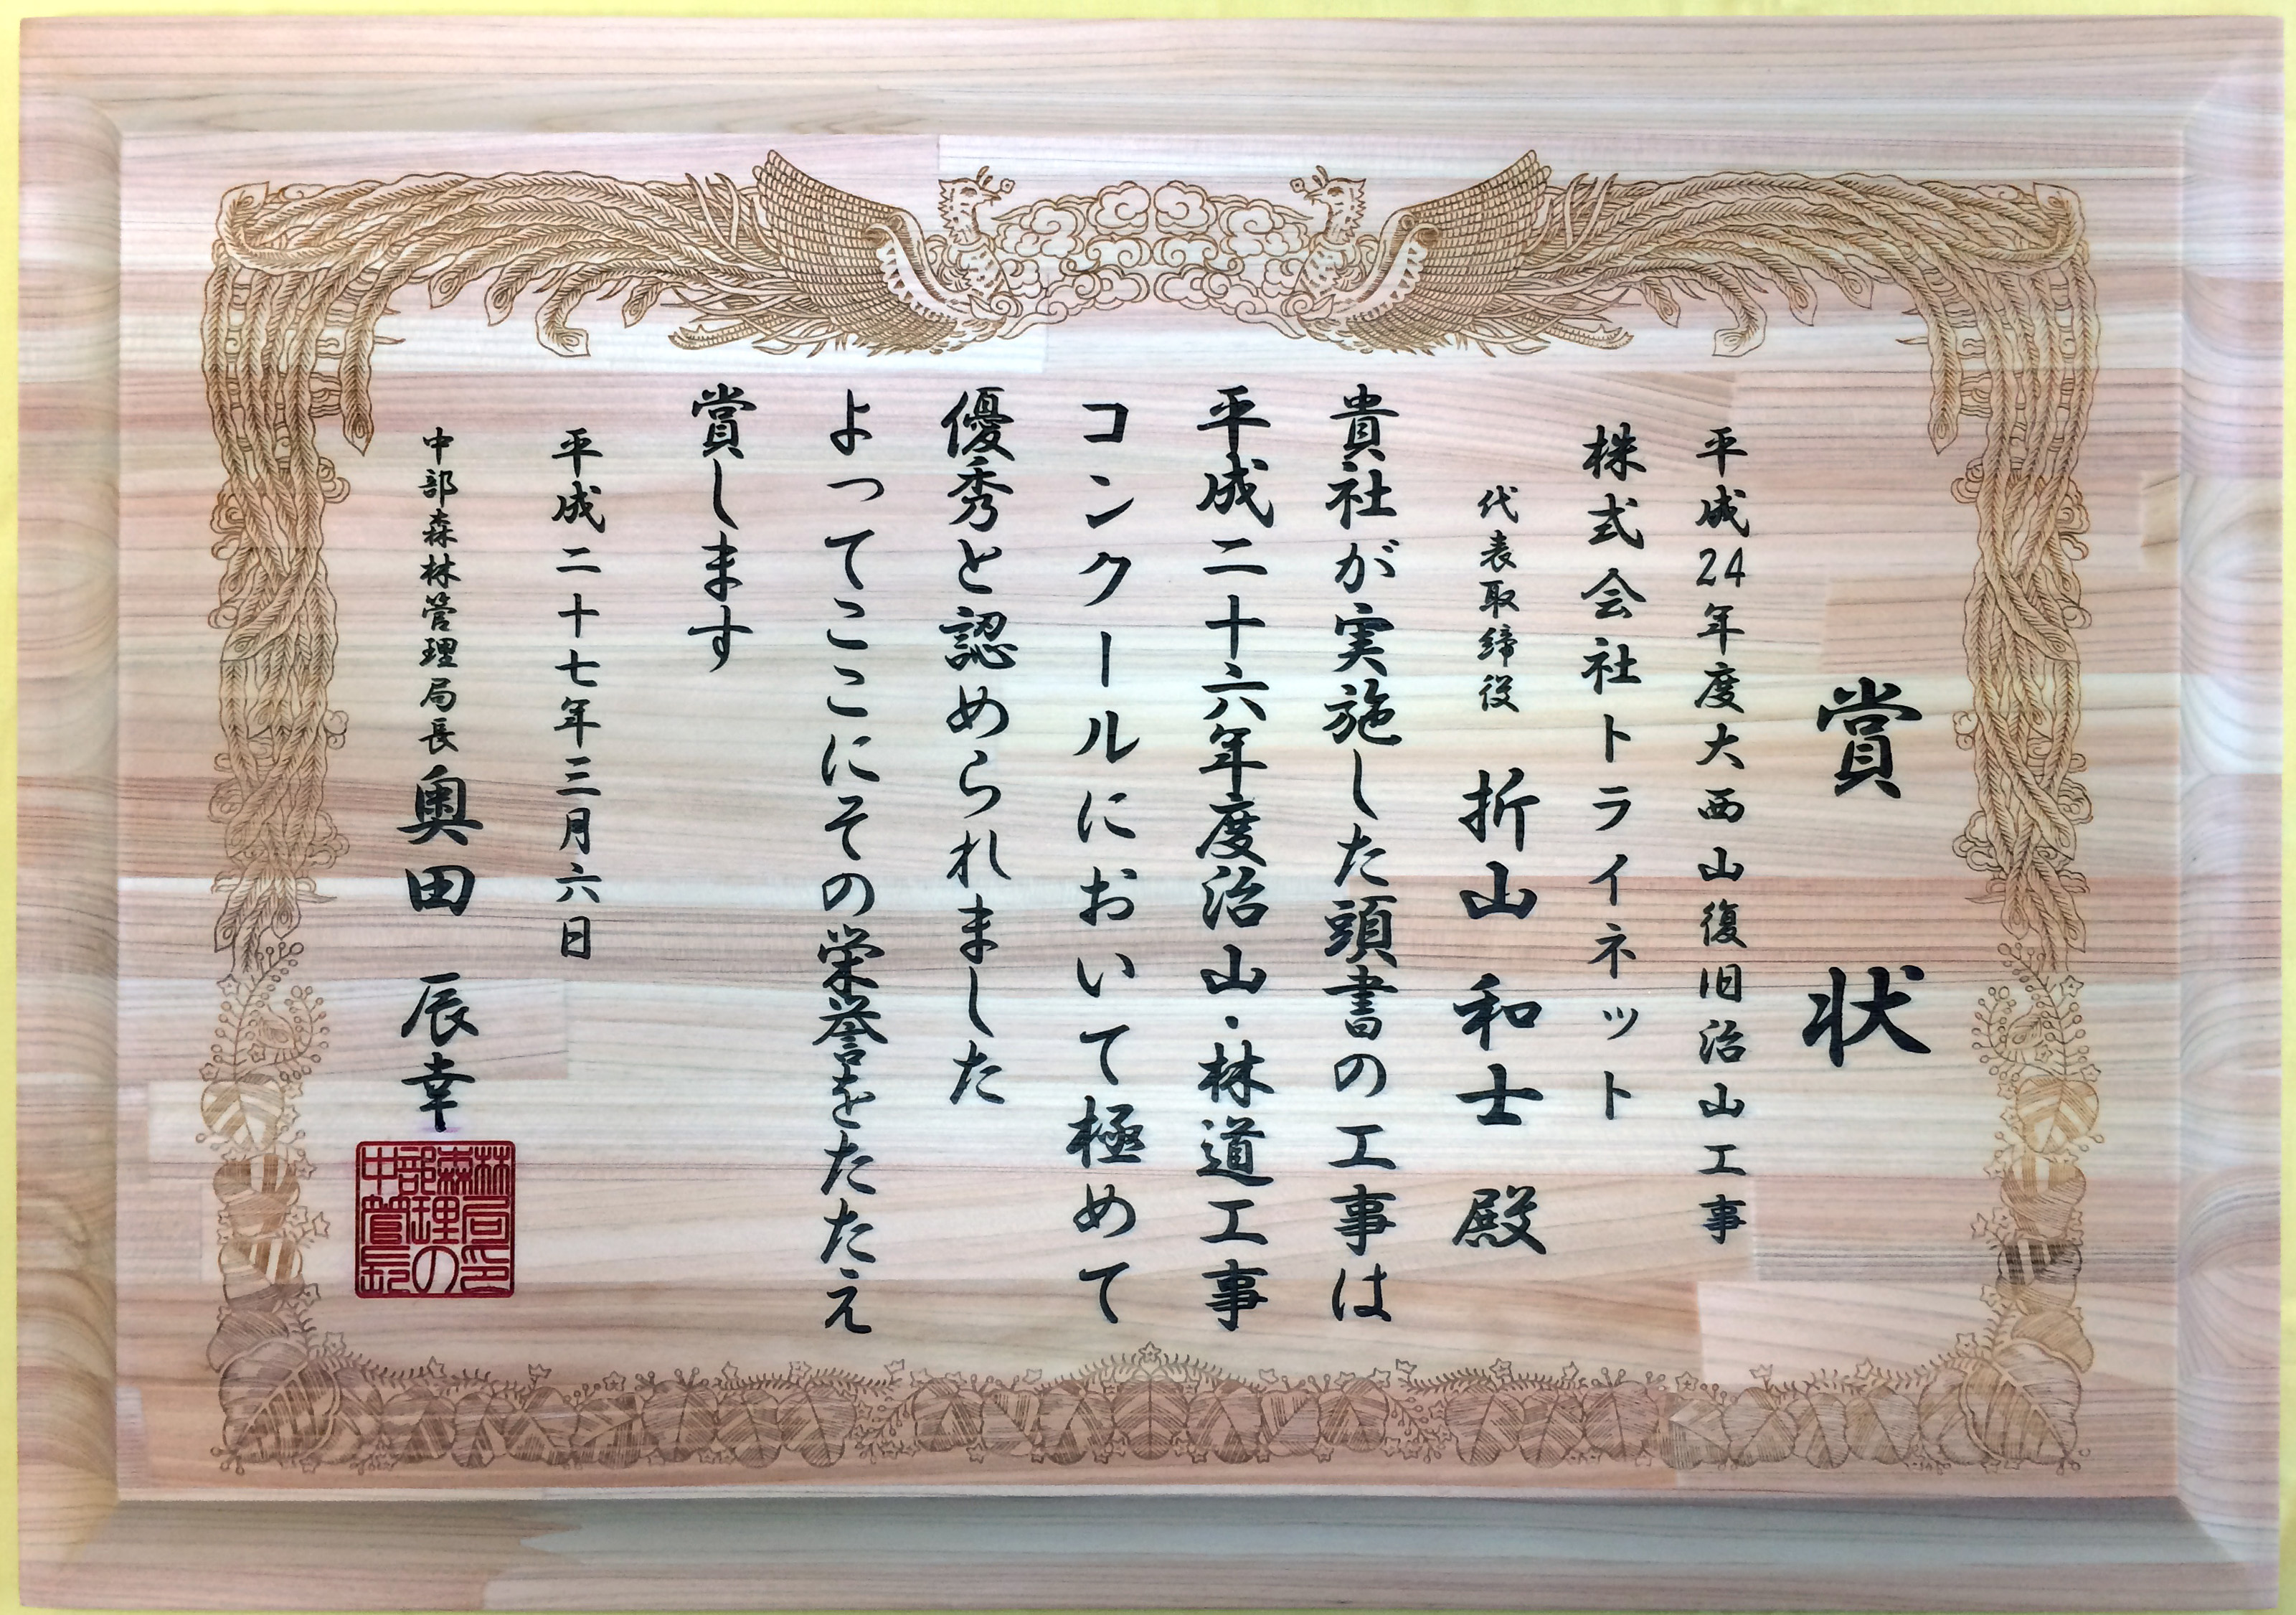 賞状
平成24年度大西山復旧治山工事
株式会社トライネット
代表取締役 折山和士殿
貴社が実施した頭書の工事は
平成二十六年度治山・林道工事
コンクールにおいて極めて
優秀と認められました
よってここにその栄誉をたたえ
賞します
平成二十七年三月六日
中部森林管理局長 奥田辰幸
中部森林
管理局
長の印